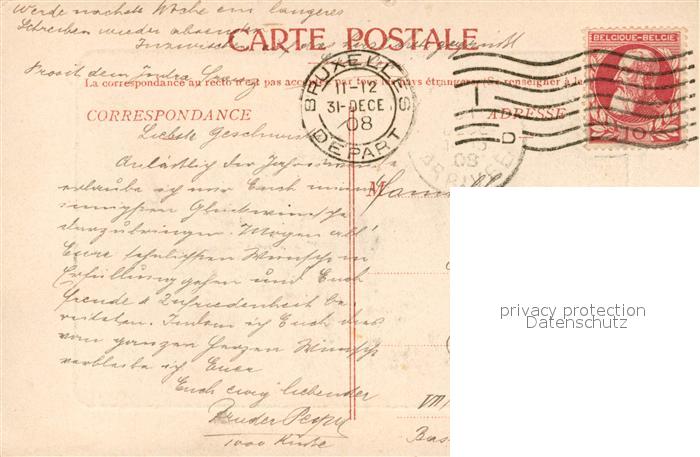 Werde nächste Woche ein längeres
Schreiben wieder absenden
Inzwischen
CARTE POSTALE
Prosit dem
La correspondance au recto n'est pas acceptée par tous les pays étrangers (Se renseigner à la
CORRESPONDANCE
ADRESSE
BELGIQUE-BELGIE
10
BRUXELLES
11-12
31-DECE
08
DEPART
Liebste Geschwister
Anlässlich der Jahreswende
erlaube ich mir Euch meine
innigsten Glückwünsche
darzubringen. Mögen all'
Eure sehnlichsten Wünsche in
Erfüllung gehen und Euch
Freude & Zufriedenheit be-
reiten. Indem ich Euch dies
vom ganzen Herzen Wünsche
verbleibe ich Euer
Euch ewig liebender
Bruder
1000 Küsse
M
VII/
Bas
privacy protection
Datenschutz